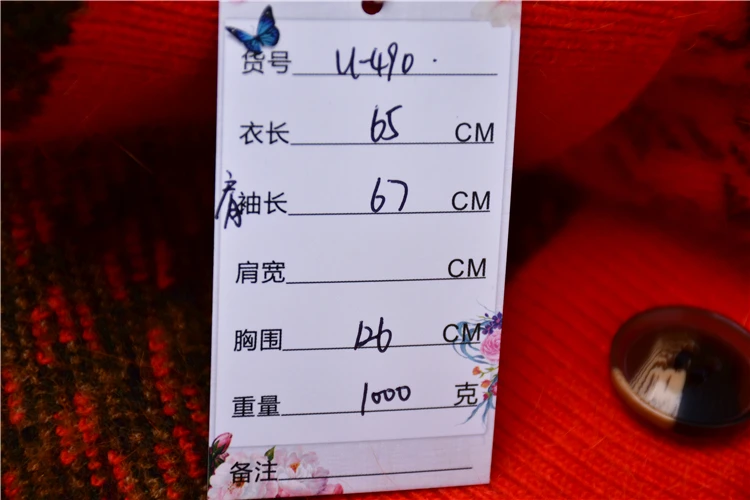 货号 U-490
衣长 65 CM
肩袖长 67 CM
肩宽 CM
胸围 126 CM
重量 1000 克
备注